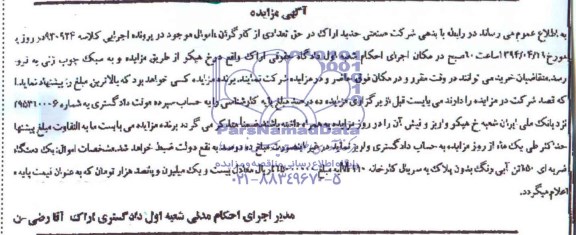 آگهی مزایده
به اطلاع عموم می رساند در رابطه با بدهی شرکت صنعتی حدید اراک در حق تعدادی از کارگران و اموال موجود در پرونده اجرایی کلاسه ۹۳۰۹۲۴ در روز
مورخ ۱۳۹۴/۰۴/۱۶ ساعت ۱۰ صبح در مکان اجرای احکام شعبه اول دادگاه حقوقی اراک واقع در خ هپکو از طریق مزایده و به سبک چوب زنی به فروش
رسد متقاضیان خرید می توانند در وقت مقرر و در مکان فوق حاضر و در مزایده شرکت نمایند. برنده مزایده کسی خواهد بود که بالاترین مبلغ را پیشنهاد نماید.
که قصد شرکت در مزایده را دارند می بایست قبل از برگزاری مزایده ده درصد مبلغ پایه کارشناسی را به حساب سپرده دولت دادگستری به شماره
نزد بانک ملی ایران شعبه خ هپکو واریز و فیش آن را در روز مزایده به همراه داشته باشند ضمناً متذکر می گردد برنده مزایده می بایست مابه التفاوت مبلغ پیشنها
حداکثر طی یک ماه از روز مزایده به حساب دادگستری واریز نماید در غیر اینصورت مبلغ ده درصد به نفع دولت ضبط خواهد شد. مشخصات اموال: یک دستگاه
ضربه ای ۱۵۰ تن آبی رنگ بدون پلاک به سریال کارخانه به مبلغ ریال معادل بیست و یک میلیون و پانصد هزار تومان که به عنوان قیمت پایه
اعلام میگردد.
مدیر اجرای احکام مدنی شعبه اول دادگستری اراک آقا رضی-ن
ParsNamadData
پایگاه اطلاع رسانی مناقصه و مزایده
۰۲۱-۸۸۳۴۹۶۷۰-۵